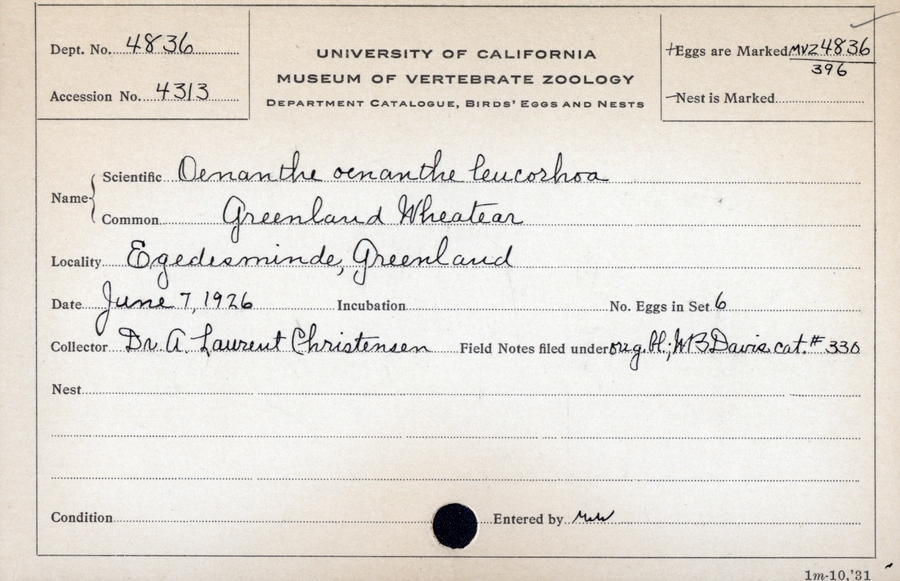 Dept. No. 4836
Accession No. 4313
UNIVERSITY OF CALIFORNIA
MUSEUM OF VERTEBRATE ZOOLOGY
DEPARTMENT CATALOGUE, BIRDS' EGGS AND NESTS
+Eggs are Marked MVZ 4836
396
—Nest is Marked
Name
Scientific Oenanthe oenanthe leucorhoa
Common Greenland Wheatear
Locality Egedesminde, Greenland
Date June 7, 1926 Incubation No. Eggs in Set 6
Collector Dr. A. Laurent Christensen Field Notes filed under orig. bl.; WB Davis cat. # 330
Nest
Condition Entered by
1m-10,'31